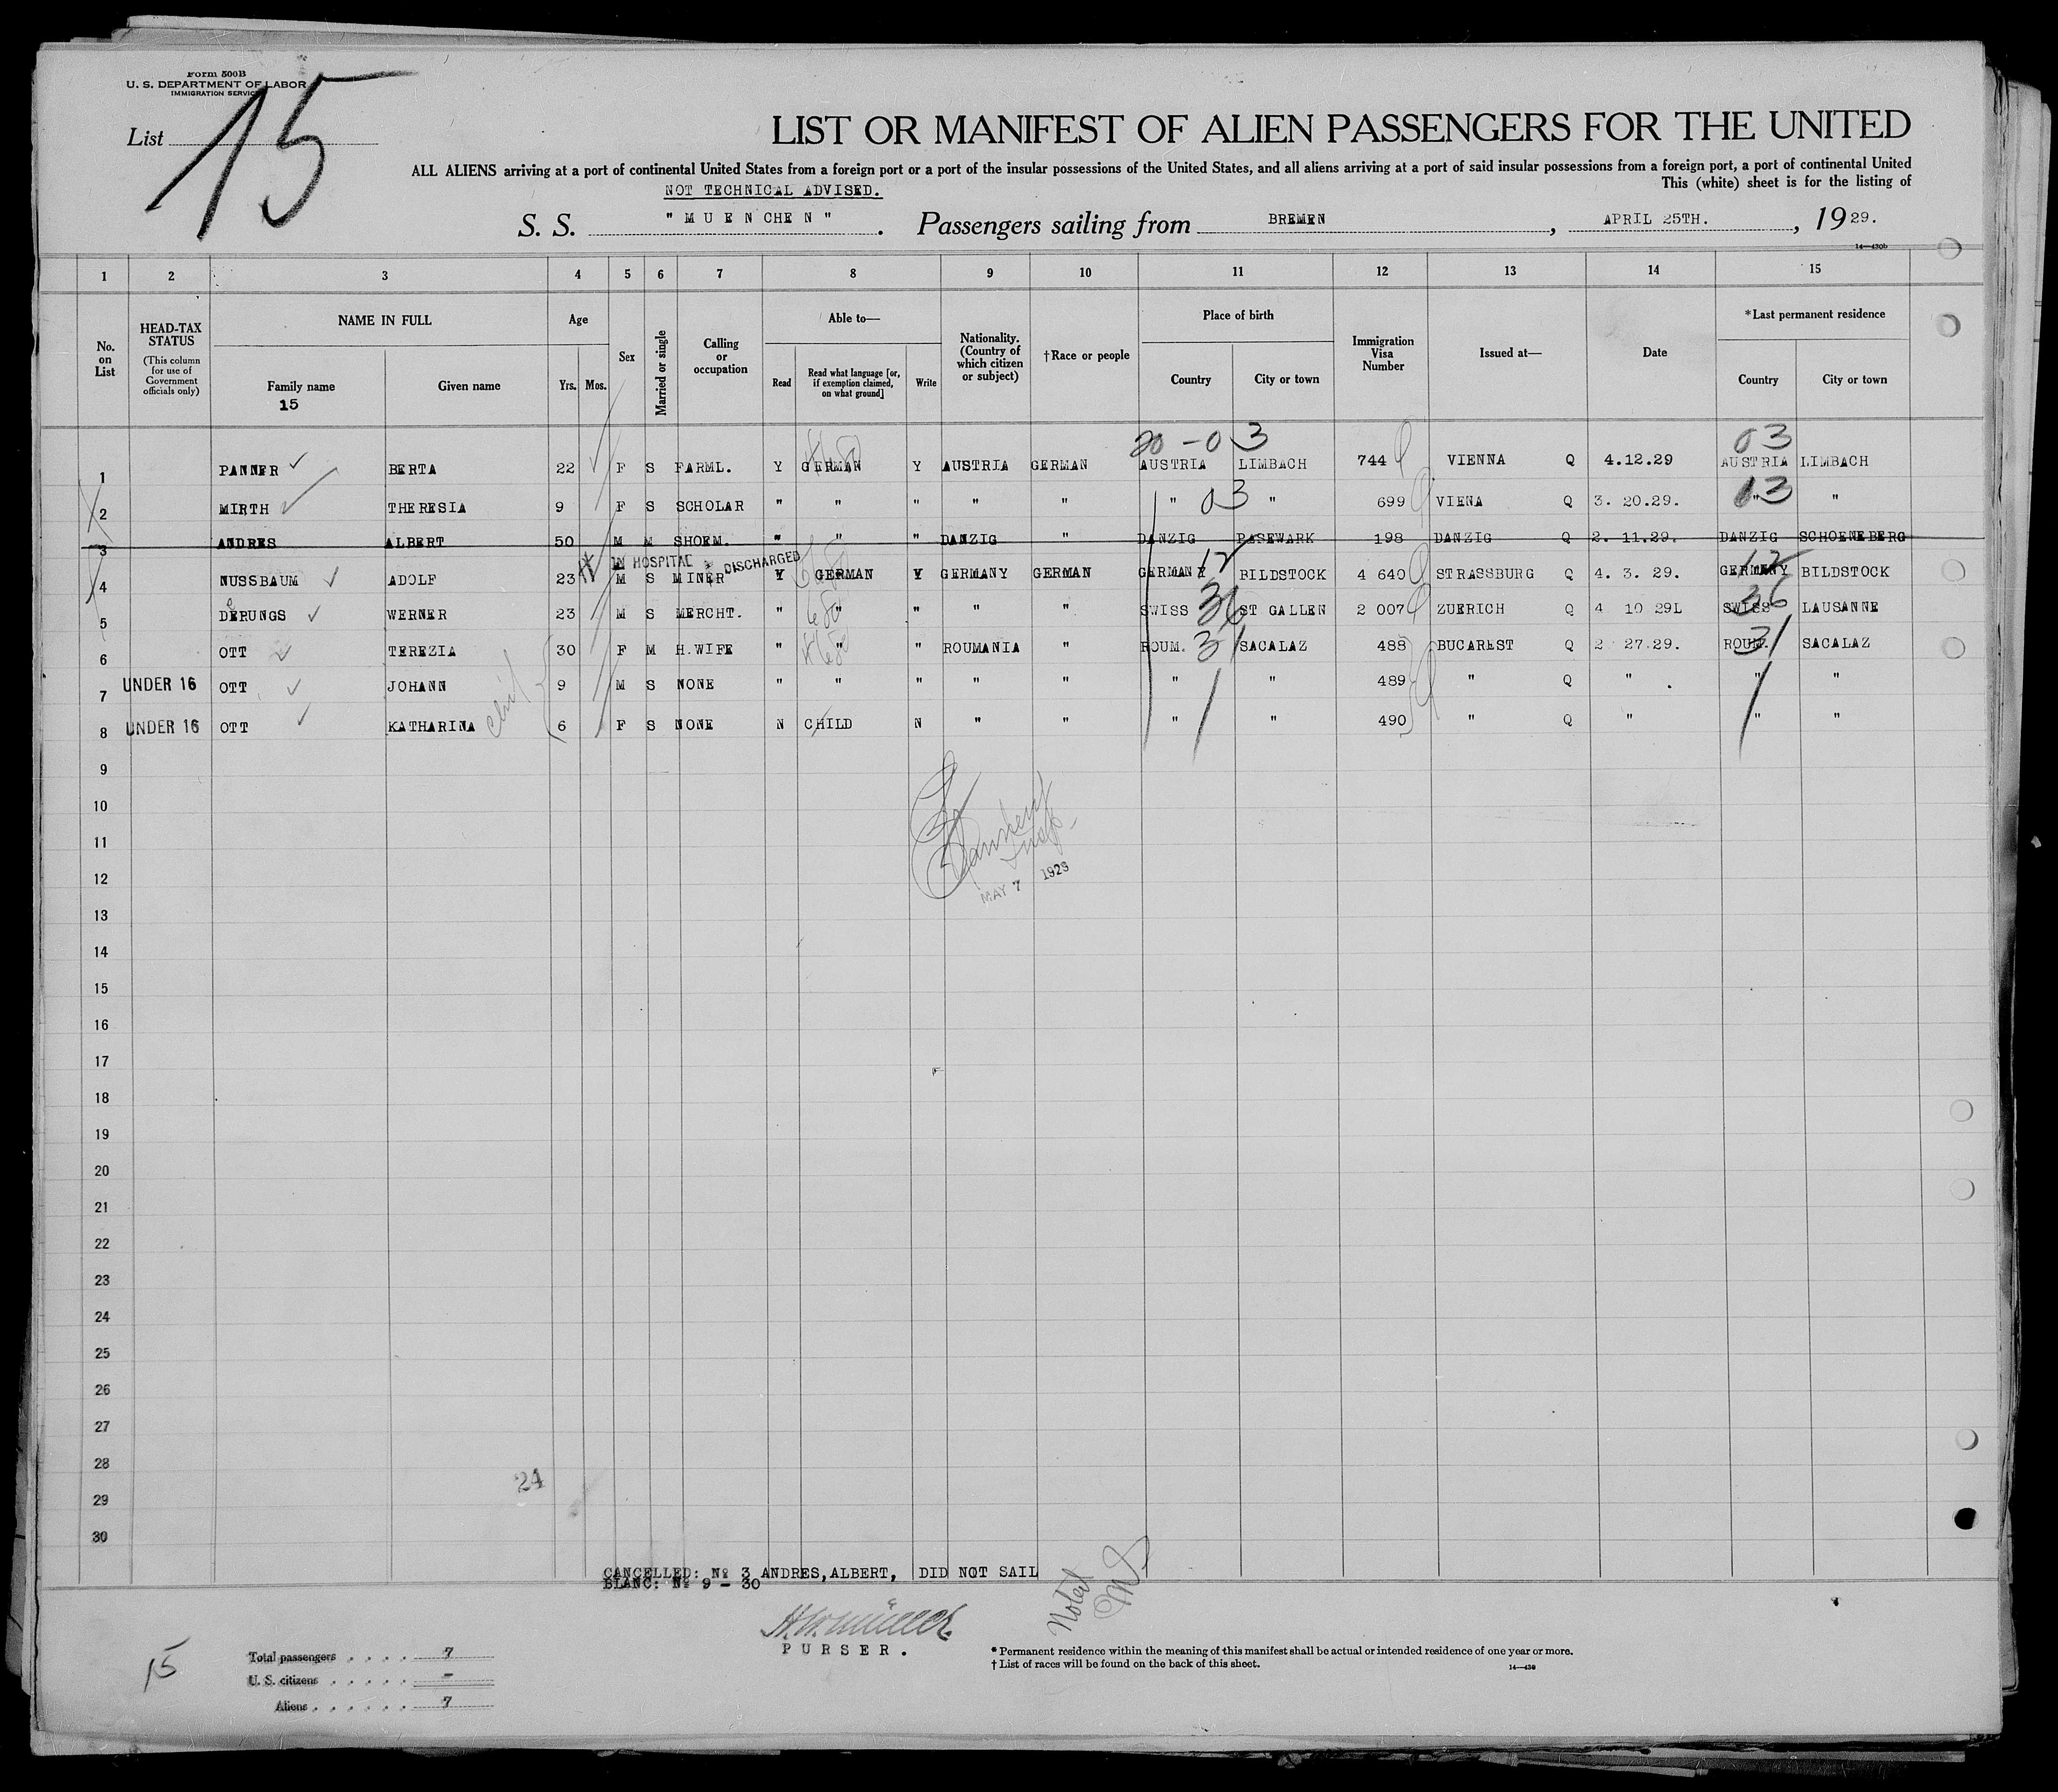 Form 500B
U. S. DEPARTMENT OF LABOR
IMMIGRATION SERVICE
List 15
LIST OR MANIFEST OF ALIEN PASSENGERS FOR THE UNITED
ALL ALIENS arriving at a port of continental United States from a foreign port or a port of the insular possessions of the United States, and all aliens arriving at a port of said insular possessions from a foreign port, a port of continental United
NOT TECHNICAL ADVISED. This (white) sheet is for the listing of
S. S. "MUENCHEN". Passengers sailing from BREMEN, APRIL 25TH., 1929.
14—430b
1 2 3 4 5 6 7 8 9 10 11 12 13 14 15
No. on List
HEAD-TAX STATUS (This column for use of Government officials only)
NAME IN FULL
Family name
Given name
15
Age
Yrs. Mos.
Sex
Married or single
Calling or occupation
Able to—
Read
Read what language [or, if exemption claimed, on what ground]
Write
Nationality. (Country of which citizen or subject)
†Race or people
Place of birth
Country
City or town
Immigration Visa Number
Issued at—
Date
*Last permanent residence
Country
City or town
20-03 03
1 PANNER BERTA 22 F S FARML. Y GERMAN Y AUSTRIA GERMAN AUSTRIA LIMBACH 744 VIENNA Q 4.12.29 AUSTRIA LIMBACH
2 MIRTH THERESIA 9 F S SCHOLAR " " " " " " 03 " 699 VIENA Q 3. 20.29. " 03 "
3 ANDRES ALBERT 50 M M SHOEM. " " " DANZIG " DANZIG PASEWARK 198 DANZIG Q 2. 11.29. DANZIG SCHOENEBERG
IN HOSPITAL DISCHARGED
4 NUSSBAUM ADOLF 23 M S MINER Y GERMAN Y GERMANY GERMAN GERMANY 12 BILDSTOCK 4 640 STRASSBURG Q 4. 3. 29. GERMANY 12 BILDSTOCK
5 DERUNGS WERNER 23 M S MERCHT. " " " " " SWISS 36 ST GALLEN 2 007 ZUERICH Q 4 10 29L SWISS 36 LAUSANNE
6 OTT TEREZIA 30 F M H.WIFE " " " ROUMANIA " ROUM. 31 SACALAZ 488 BUCAREST Q 2 27.29. ROUM. 31 SACALAZ
7 UNDER 16 OTT JOHANN 9 M S NONE " " " " " " " 489 " Q " " "
8 UNDER 16 OTT KATHARINA 6 F S NONE N CHILD N " " " " 490 " Q " " "
9
10
11
12
MAY 7 1929
13
14
15
16
17
18
19
20
21
22
23
24
25
26
27
28
24
29
30
CANCELLED: № 3 ANDRES,ALBERT, DID NOT SAIL
BLANC: № 9 – 30
PURSER.
*Permanent residence within the meaning of this manifest shall be actual or intended residence of one year or more.
†List of races will be found on the back of this sheet.
14—430
15
Total passengers . . . . 7
U. S. citizens . . . . . –
Aliens . . . . . . 7